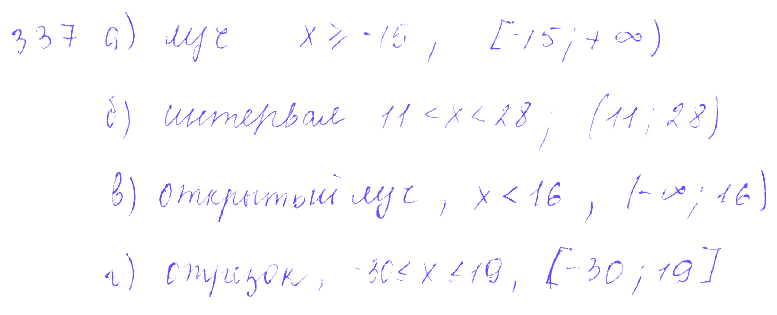 337 а) луч x ⩾ -15, [-15; +∞)
б) интервал 11 < x < 28; (11; 28)
в) открытый луч, x < 16, (-∞; 16)
г) отрезок, -30 ≤ x ≤ 19, [-30; 19]